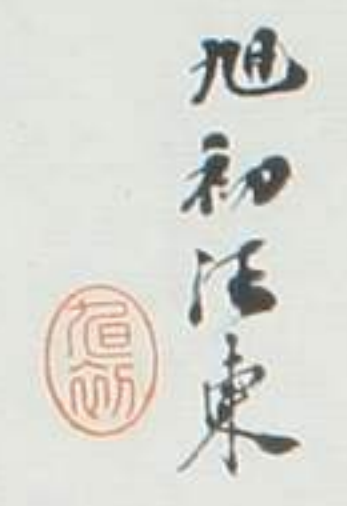 旭初汪東
旭初